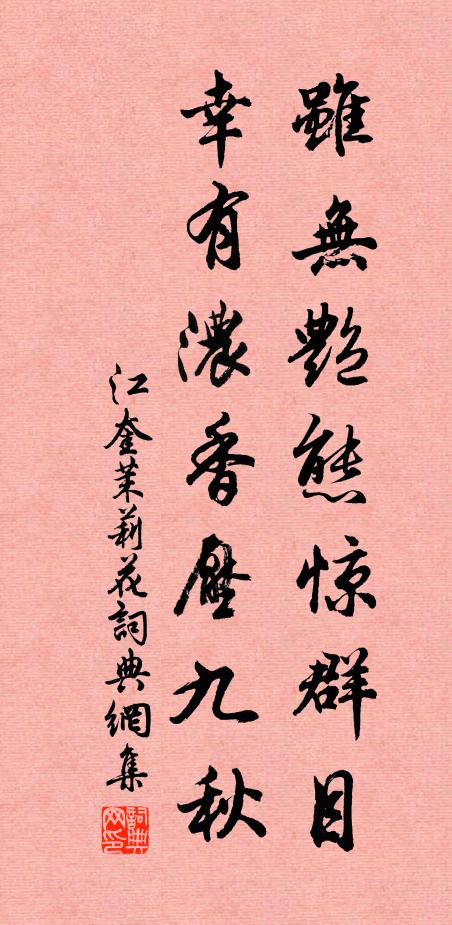 雖無艷態惊群目
幸有濃香壓九秋
江奎茉莉花詞典網集
詞典网印